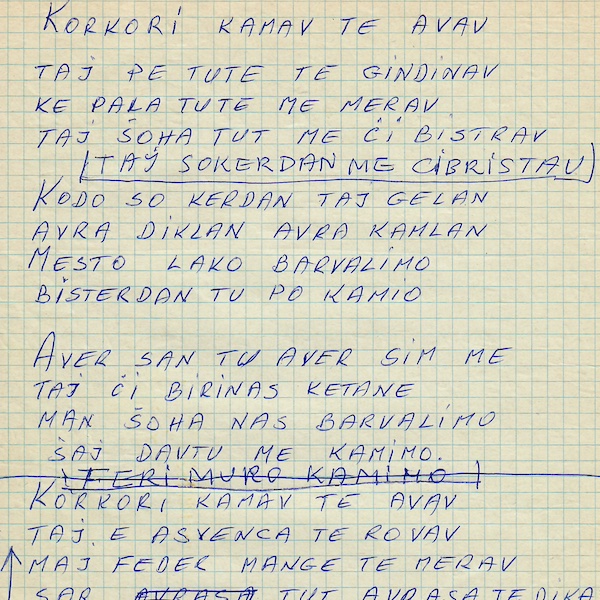 KORKORI KAMAV TE AVAV
TAJ PE TUTE TE GINDINAV
KE PALA TUTE ME MERAV
TAJ ŠOHA TUT ME ČI BISTRAV
(TAJ SOKERDAN ME CIBRISTAV)
KODO SO KERDAN TAJ GELAN
AVRA DIKLAN AVRA KAMLAN
MESTO LAKO BARVALIMO
BISTERDAN TU PO KAMIO
AVER SAN TU AVER SIM ME
TAJ ČI BIRINAS KETANE
MAN ŠOHA NAS BARVALIMO
ŠAJ DAVTU ME KAMIMO.
(FERI MURO KAMIMO)
KORKORI KAMAV TE AVAV
TAJ E ASVENCA TE ROVAV
MAJ FEDER MANGE TE MERAV
SAR AVRASA TUT AVRASA TE DIKA